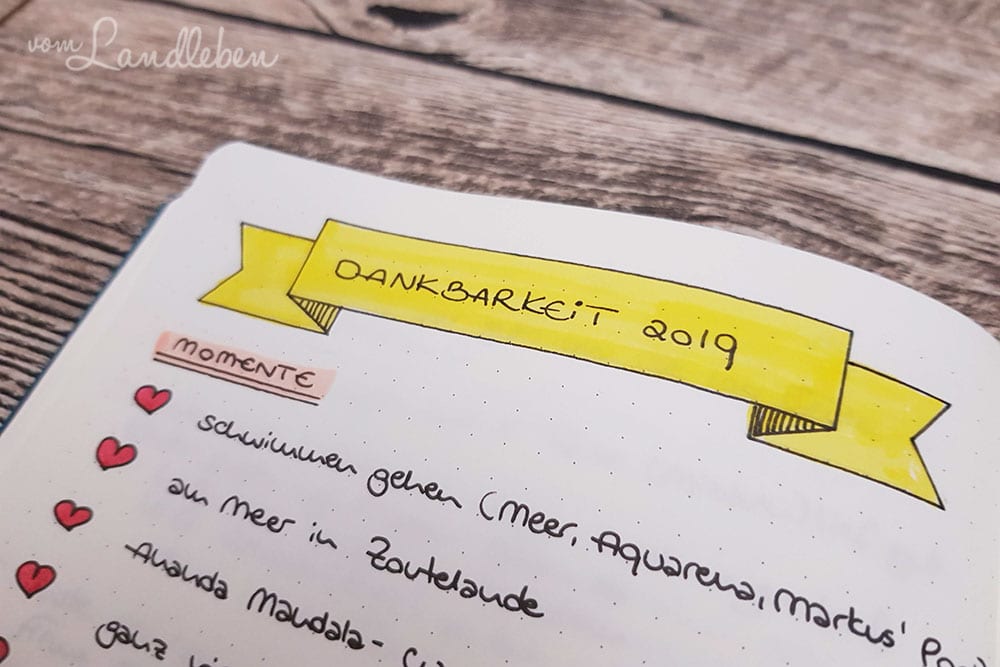 vom Landleben
DANKBARKEIT 2019
MOMENTE
schwimmen gehen (Meer, Aquarena, Markus'
am Meer in Zoutelande
Ananda Mandala-
ganz